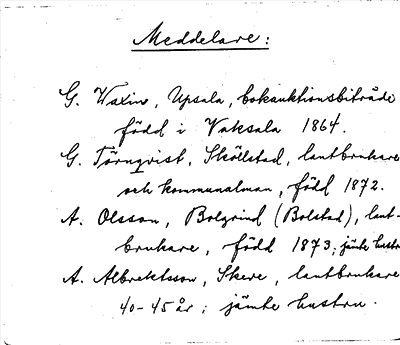 Meddelare:
G. Waxin, Upsala, bokauktionsbiträde
född i Vaksala 1864.
G. Törnqvist, Sköllstad, lantbrukare
och kommunalman, född 1872.
A. Olsson, Bolgrind (Bolstad), lant-
brukare, född 1873; jämte hustru
A. Albrektsson, Skere, lantbrukare
40-45 år; jämte hustru.